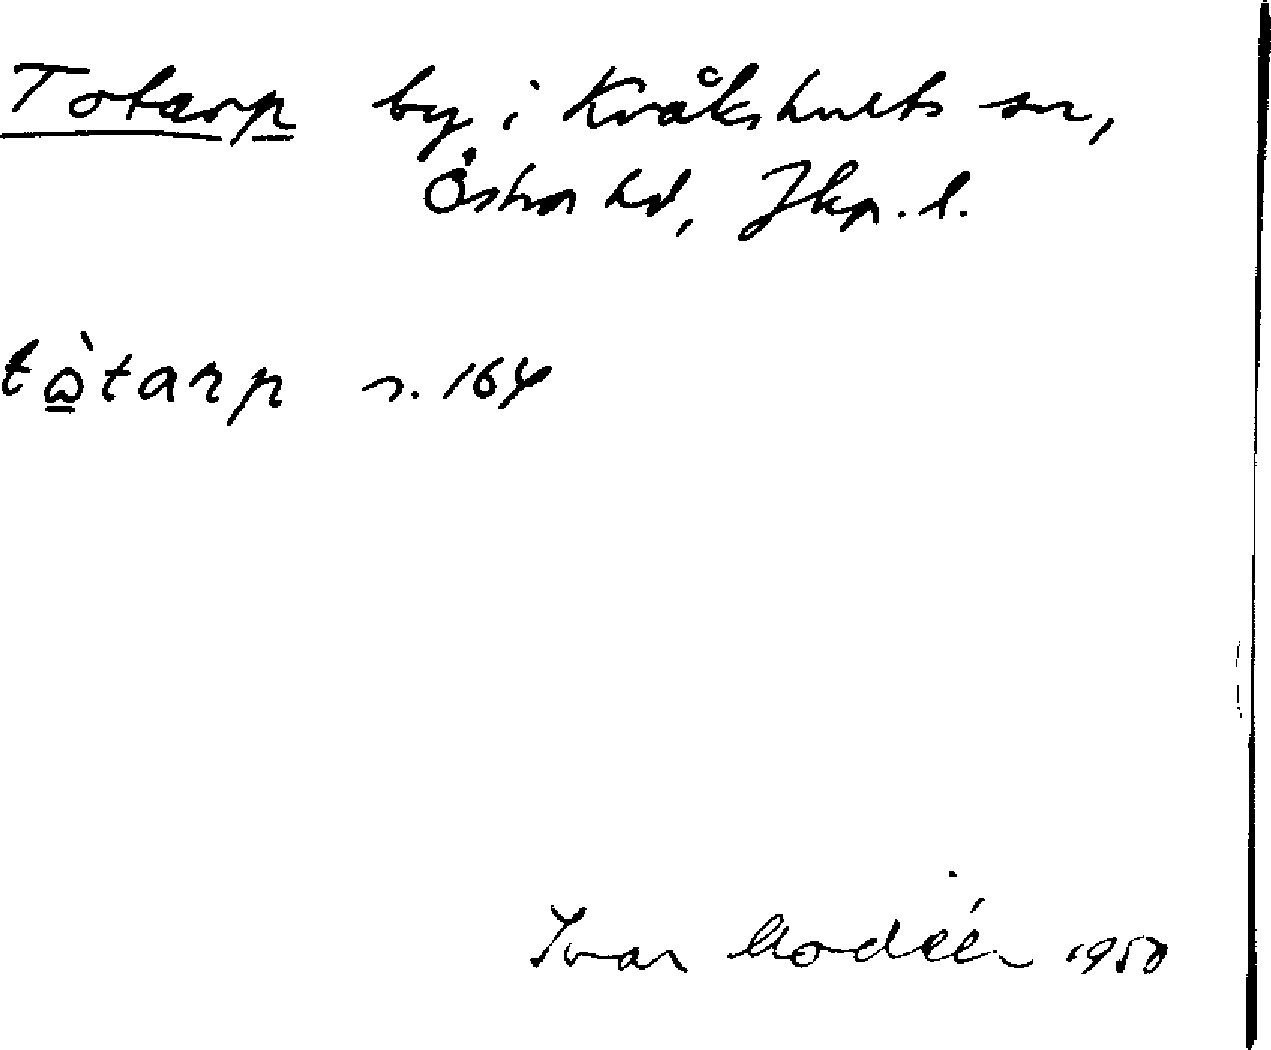 Totarp by i Kråkshults sn,
Östra hd, Jkp. l.
tὼ̲tarp s. 164
Ivar Modéer 1950